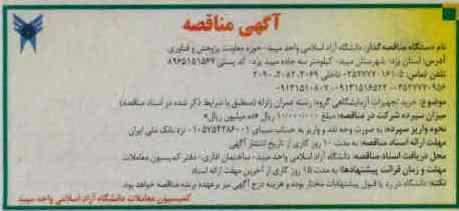 آگهی مناقصه
نام دستگاه مناقصه گذار: دانشگاه آزاد اسلامی واحد میبد - حوزه معاونت پژوهش و فناوری
آدرس: استان یزد - شهرستان میبد - کیلومتر سه جاده میبد یزد - کد پستی ۸۹۶۵۱۵۱۵۶۷
تلفن تماس: ۵-۰۳۵۲۷۷۷۰۱۶۱ داخلی ۲۰۶۹، ۲۰۸۲، ۲۰۹۰
۰۳۵۲۷۷۷۰۹۵۶ - ۰۹۱۳۱۵۱۶۵۲۲ - ۰۹۱۳۱۵۱۰۸۰۲
موضوع: خرید تجهیزات آزمایشگاهی گروه/ رشته عمران زلزله (منطبق با شرایط ذکر شده در اسناد مناقصه)
میزان سپرده شرکت در مناقصه: مبلغ ۱۰/۰۰۰/۰۰۰ ریال «ده میلیون ریال»
نحوه واریز سپرده: به صورت وجه نقد و واریز به حساب سیبای ۰۱۰۵۷۵۴۲۸۶۰۰۱ نزد بانک ملی ایران
مهلت ارائه اسناد مناقصه: به مدت ۱۰ روز کاری از تاریخ انتشار آگهی
محل دریافت اسناد مناقصه: دانشگاه آزاد اسلامی واحد میبد - ساختمان اداری - دفتر کمیسیون معاملات
مهلت و زمان قرائت پیشنهادها: به مدت ۱۵ روز کاری از آخرین مهلت ارائه اسناد
نکته: دانشگاه در رد یا قبول پیشنهادات مختار بوده و هزینه درج آگهی نیز برعهده برنده مناقصه خواهد بود.
کمیسیون معاملات دانشگاه آزاد اسلامی واحد میبد